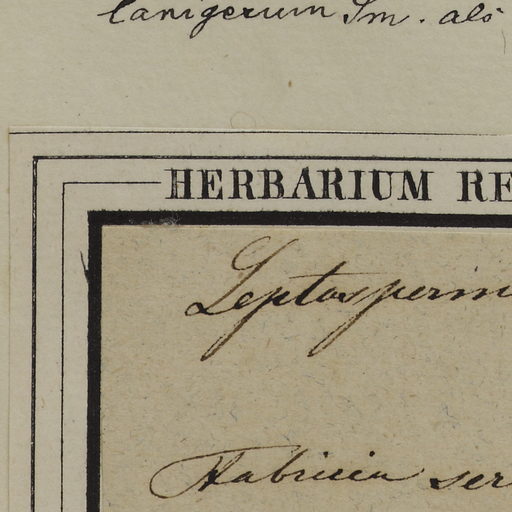 lanigerum Sm. als
HERBARIUM RE
Leptosperm
Fabricia ser